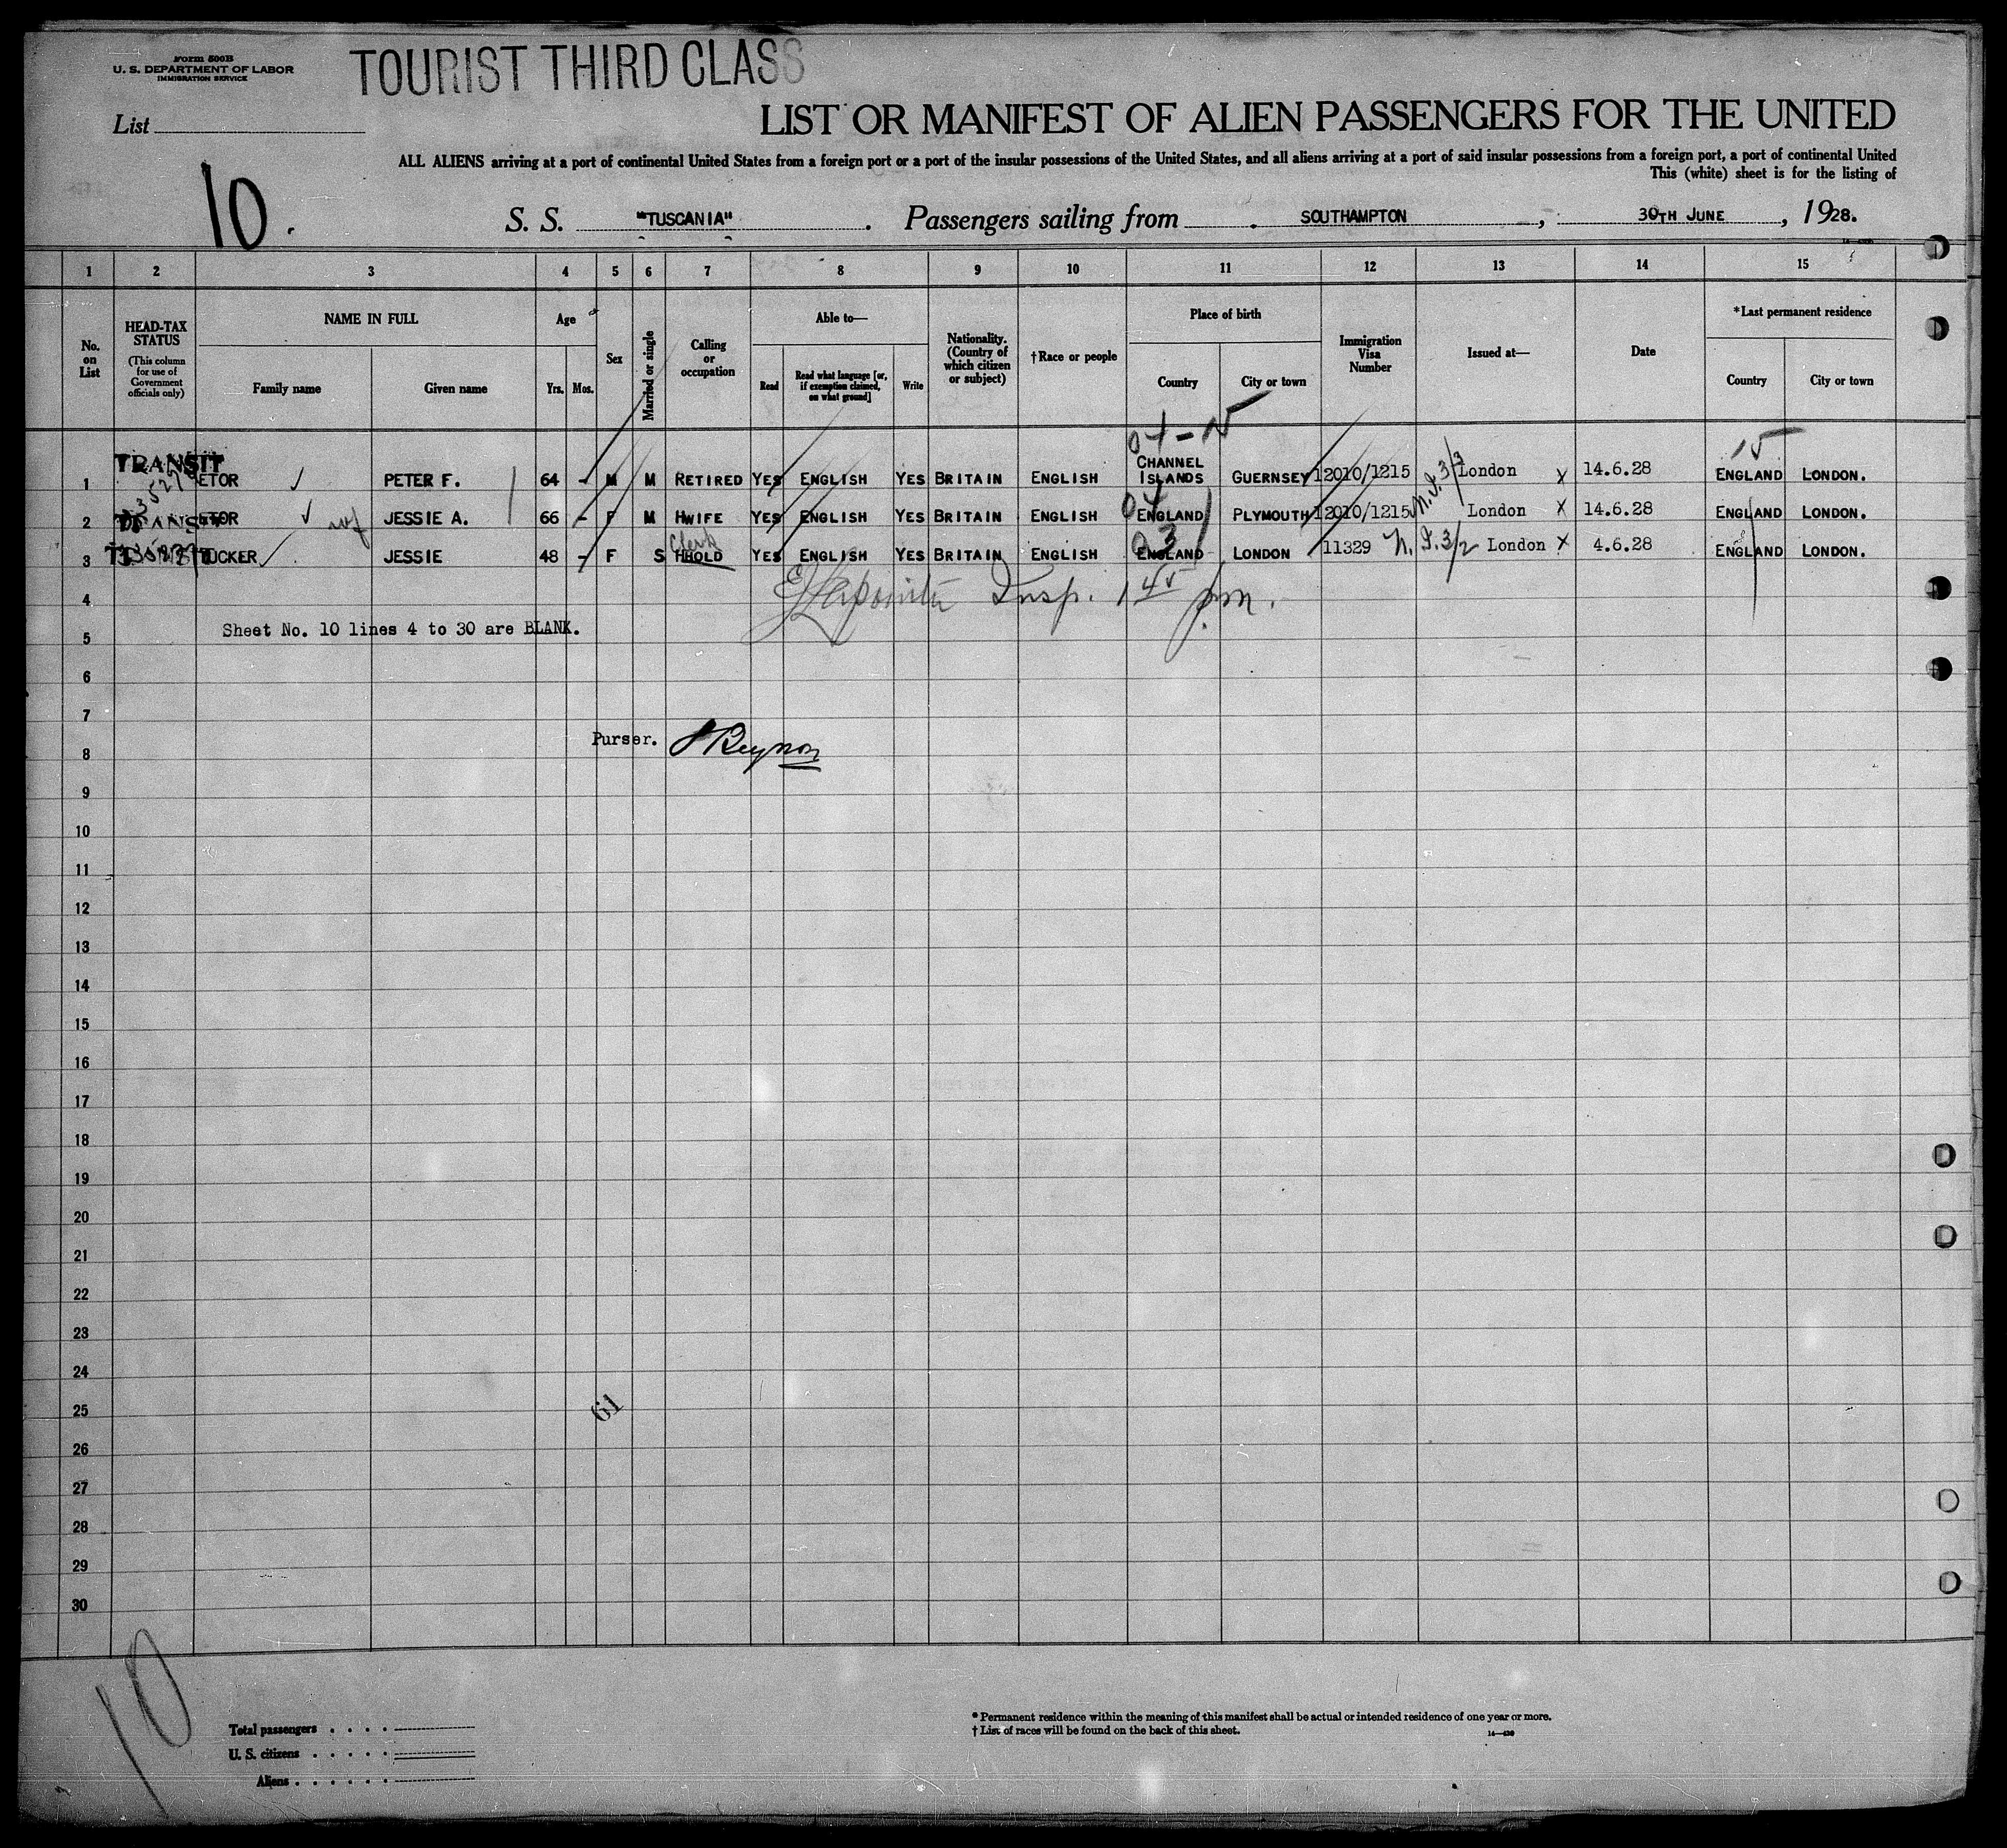 Form 500B
U. S. DEPARTMENT OF LABOR
IMMIGRATION SERVICE
TOURIST THIRD CLASS
List
LIST OR MANIFEST OF ALIEN PASSENGERS FOR THE UNITED
ALL ALIENS arriving at a port of continental United States from a foreign port or a port of the insular possessions of the United States, and all aliens arriving at a port of said insular possessions from a foreign port, a port of continental United
This (white) sheet is for the listing of
10.
S. S. "TUSCANIA". Passengers sailing from SOUTHAMPTON, 30TH JUNE, 1928.
1 2 3 4 5 6 7 8 9 10 11 12 13 14 15
No. on List
HEAD-TAX STATUS
(This column for use of Government officials only)
NAME IN FULL
Family name Given name
Age
Yrs. Mos.
Sex
Married or single
Calling or occupation
Able to—
Read
Read what language [or, if exemption claimed, on what ground]
Write
Nationality. (Country of which citizen or subject)
†Race or people
Place of birth
Country City or town
Immigration Visa Number
Issued at—
Date
*Last permanent residence
Country City or town
04-15 15
1 TRANSIT ETOR PETER F. 64 - M M RETIRED YES ENGLISH YES BRITAIN ENGLISH CHANNEL ISLANDS GUERNSEY 12010/1215 London X 14.6.28 ENGLAND LONDON.
2 ETOR JESSIE A. 66 - F M HWIFE YES ENGLISH YES BRITAIN ENGLISH 04 ENGLAND PLYMOUTH 12010/1215 London X 14.6.28 ENGLAND LONDON.
3 TUCKER JESSIE 48 - F S HHOLD Clerk YES ENGLISH YES BRITAIN ENGLISH 03 ENGLAND LONDON 11329 London X 4.6.28 ENGLAND LONDON.
4
Insp. 1 45 pm.
5 Sheet No. 10 lines 4 to 30 are BLANK.
6
7
8 Purser.
9
10
11
12
13
14
15
16
17
18
19
20
21
22
23
24
25 61
26
27
28
29
30
10
Total passengers
U. S. citizens
Aliens
* Permanent residence within the meaning of this manifest shall be actual or intended residence of one year or more.
† List of races will be found on the back of this sheet.